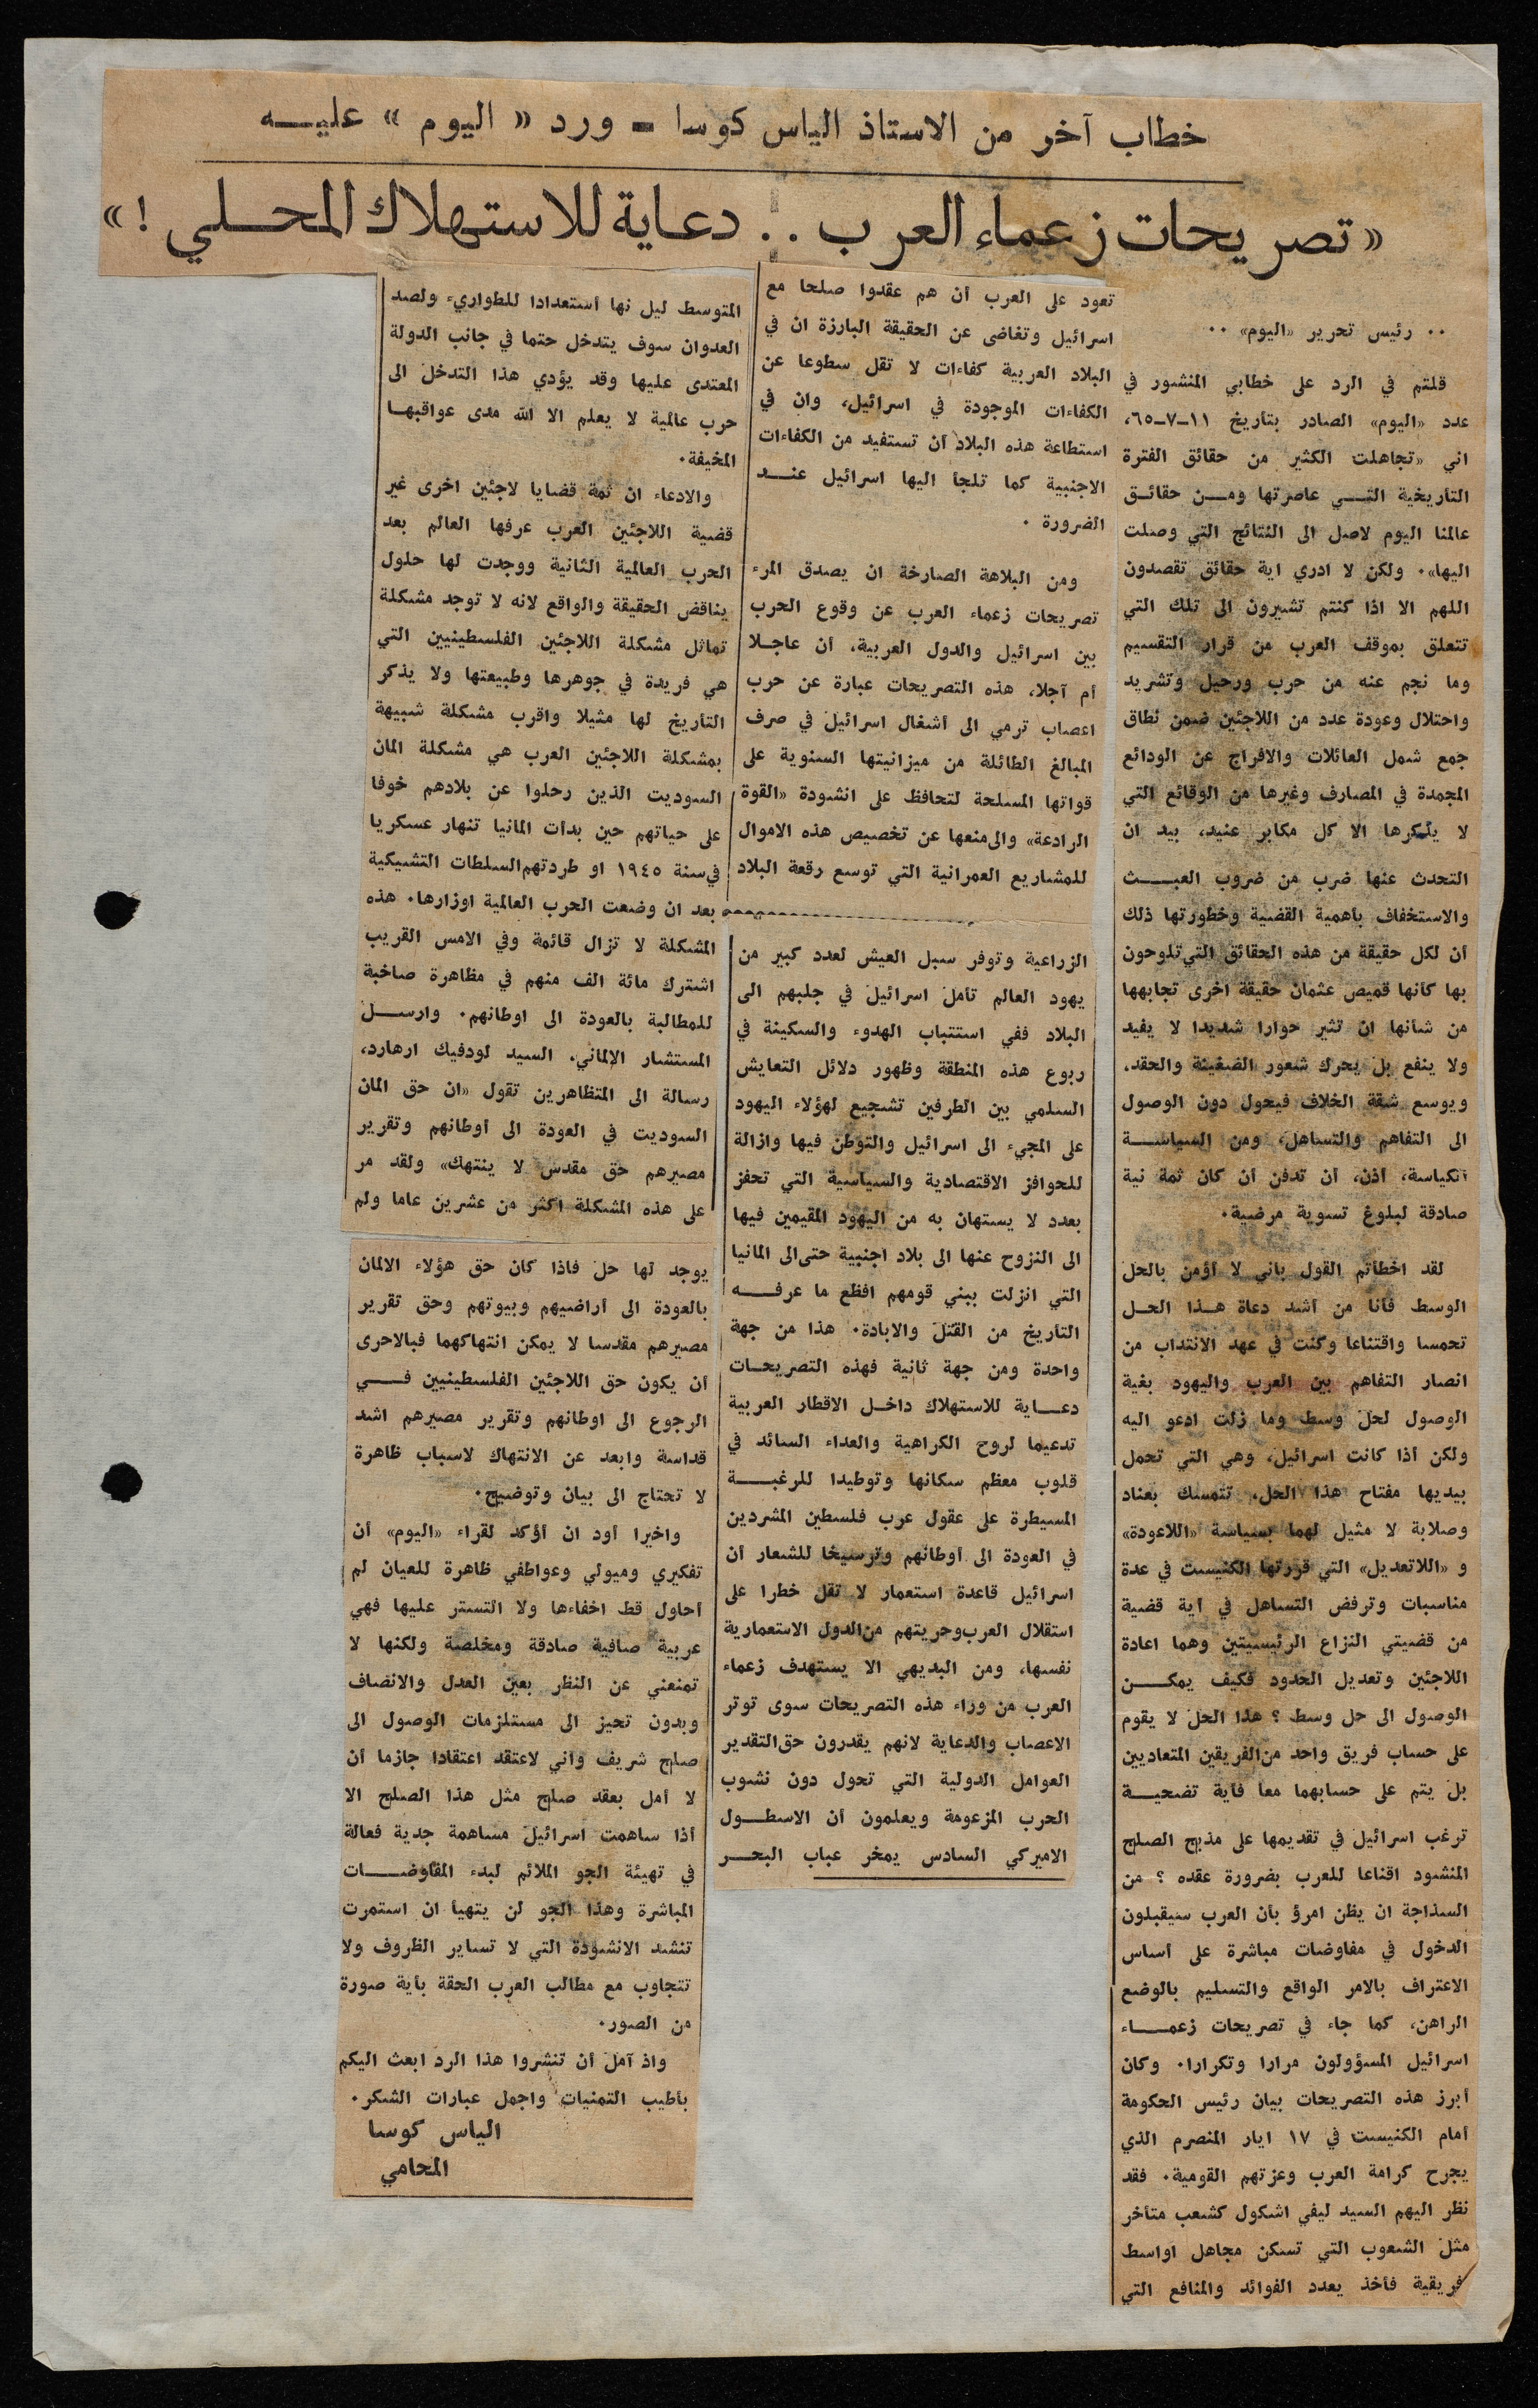 خطاب آخر من الاستاذ الياس كوسا - ورد « اليوم » عليــه
« تصريحات زعماء العرب .. دعاية للاستهلاك المحــلي ! »
٠٠ رئيس تحرير «اليوم» ٠٠
قلتم في الرد على خطابي المنشور في
عدد «اليوم» الصادر بتأريخ ١١-٧-٦٥،
اني «تجاهلت الكثير من حقائق الفترة
التأريخية التــي عاصرتها ومــن حقائــق
عالمنا اليوم لاصل الى النتائج التي وصلت
اليها». ولكن لا ادري اية حقائق تقصدون
اللهم الا اذا كنتم تشيرون الى تلك التي
تتعلق بموقف العرب من قرار التقسيم
وما نجم عنه من حرب ورحيل وتشريد
واحتلال وعودة عدد من اللاجئين ضمن نطاق
جمع شمل العائلات والافراج عن الودائع
المجمدة في المصارف وغيرها من الوقائع التي
لا ينكرها الا كل مكابر عنيد، بيد ان
التحدث عنها ضرب من ضروب العبــث
والاستخفاف بأهمية القضية وخطورتها ذلك
أن لكل حقيقة من هذه الحقائق التي تلوحون
بها كأنها قميص عثمان حقيقة اخرى تجابهها
من شأنها ان تثير حوارا شديدا لا يفيد
ولا ينفع بل يحرك شعور الضغينة والحقد،
ويوسع شقة الخلاف فيحول دون الوصول
الى التفاهم والتساهل، ومن السياســة
الكياسة، أذن، أن تدفن أن كان ثمة نية
صادقة لبلوغ تسوية مرضية.
لقد اخطأتم القول باني لا أؤمن بالحل
الوسط فأنا من أشد دعاة هــذا الحــل
تحمسا واقتناعا وكنت في عهد الانتداب من
انصار التفاهم بين العرب واليهود بغية
الوصول لحل وسط وما زلت ادعو اليه
ولكن أذا كانت اسرائيل، وهي التي تحمل
بيديها مفتاح هذا الحل، تتمسك بعناد
وصلابة لا مثيل لهما بسياسة «اللاعودة»
و «اللاتعديل» التي قررتها الكنيست في عدة
مناسبات وترفض التساهل في أية قضية
من قضيتي النزاع الرئيسيتين وهما اعادة
اللاجئين وتعديل الحدود فكيف يمكــن
الوصول الى حل وسط ؟ هذا الحل لا يقوم
على حساب فريق واحد من الفريقين المتعاديين
بل يتم على حسابهما معا فأية تضحيــة
ترغب اسرائيل في تقديمها على مذبح الصلح
المنشود اقناعا للعرب بضرورة عقده ؟ من
السذاجة ان يظن امرؤ بأن العرب سيقبلون
الدخول في مفاوضات مباشرة على أساس
الاعتراف بالامر الواقع والتسليم بالوضع
الراهن، كما جاء في تصريحات زعمــاء
اسرائيل المسؤولون مرارا وتكرارا. وكان
أبرز هذه التصريحات بيان رئيس الحكومة
أمام الكنيست في ١٧ ايار المنصرم الذي
يجرح كرامة العرب وعزتهم القومية. فقد
نظر اليهم السيد ليفي اشكول كشعب متأخر
مثل الشعوب التي تسكن مجاهل اواسط
فريقية فأخذ يعدد الفوائد والمنافع التي
تعود على العرب أن هم عقدوا صلحا مع
اسرائيل وتغاضى عن الحقيقة البارزة ان في
البلاد العربية كفاءات لا تقل سطوعا عن
الكفاءات الموجودة في اسرائيل، وان في
استطاعة هذه البلاد أن تستفيد من الكفاءات
الاجنبية كما تلجأ اليها اسرائيل عنــد
الضرورة .
ومن البلاهة الصارخة ان يصدق المرء
تصريحات زعماء العرب عن وقوع الحرب
بين اسرائيل والدول العربية، أن عاجــلا
أم آجلا، هذه التصريحات عبارة عن حرب
اعصاب ترمي الى أشغال اسرائيل في صرف
المبالغ الطائلة من ميزانيتها السنوية على
قواتها المسلحة لتحافظ على انشودة «القوة
الرادعة» والى منعها عن تخصيص هذه الاموال
للمشاريع العمرانية التي توسع رقعة البلاد
الزراعية وتوفر سبل العيش لعدد كبير من
يهود العالم تأمل اسرائيل في جلبهم الى
البلاد ففي استتباب الهدوء والسكينة في
ربوع هذه المنطقة وظهور دلائل التعايش
السلمي بين الطرفين تشجيع لهؤلاء اليهود
على المجيء الى اسرائيل والتوطن فيها وازالة
للحوافز الاقتصادية والسياسية التي تحفز
بعدد لا يستهان به من اليهود المقيمين فيها
الى النزوح عنها الى بلاد اجنبية حتى الى المانيا
التي انزلت ببني قومهم افظع ما عرفــه
التأريخ من القتل والابادة. هذا من جهة
واحدة ومن جهة ثانية فهذه التصريحــات
دعــاية للاستهلاك داخــل الاقطار العربية
تدعيما لروح الكراهية والعداء السائد في
قلوب معظم سكانها وتوطيدا للرغبــة
المسيطرة على عقول عرب فلسطين المشردين
في العودة الى أوطانهم وترسيخا للشعار أن
اسرائيل قاعدة استعمار لا تقل خطرا على
استقلال العرب وحريتهم من الدول الاستعمارية
نفسها، ومن البديهي الا يستهدف زعماء
العرب من وراء هذه التصريحات سوى توتر
الاعصاب والدعاية لانهم يقدرون حق التقدير
العوامل الدولية التي تحول دون نشوب
الحرب المزعومة ويعلمون أن الاسطــول
الاميركي السادس يمخر عباب البحــر
المتوسط ليل نها أستعدادا للطواريء ولصد
العدوان سوف يتدخل حتما في جانب الدولة
المعتدى عليها وقد يؤدي هذا التدخل الى
حرب عالمية لا يعلم الا الله مدى عواقبهــا
المخيفة.
والادعاء ان ثمة قضايا لاجئين اخرى غير
قضية اللاجئين العرب عرفها العالم بعد
الحرب العالمية الثانية ووجدت لها حلول
يناقض الحقيقة والواقع لانه لا توجد مشكلة
تماثل مشكلة اللاجئين الفلسطينيين التي
هي فريدة في جوهرها وطبيعتها ولا يذكر
التأريخ لها مثيلا واقرب مشكلة شبيهة
بمشكلة اللاجئين العرب هي مشكلة المان
السوديت الذين رحلوا عن بلادهم خوفا
على حياتهم حين بدأت المانيا تنهار عسكريا
في سنة ١٩٤٥ او طردتهم السلطات التشيكية
بعد ان وضعت الحرب العالمية اوزارها. هذه
المشكلة لا تزال قائمة وفي الامس القريب
اشترك مائة الف منهم في مظاهرة صاخبة
للمطالبة بالعودة الى اوطانهم. وارســل
المستشار الالماني. السيد لودفيك ارهارد،
رسالة الى المتظاهرين تقول «ان حق المان
السوديت في العودة الى أوطانهم وتقرير
مصيرهم حق مقدس لا ينتهك» ولقد مر
على هذه المشكلة اكثر من عشرين عاما ولم
يوجد لها حل فاذا كان حق هؤلاء الالمان
بالعودة الى أراضيهم وبيوتهم وحق تقرير
مصيرهم مقدسا لا يمكن انتهاكهما فبالاحرى
أن يكون حق اللاجئين الفلسطينيين فــي
الرجوع الى اوطانهم وتقرير مصيرهم اشد
قداسة وابعد عن الانتهاك لاسباب ظاهرة
لا تحتاج الى بيان وتوضيح.
واخيرا أود ان أؤكد لقراء «اليوم» أن
تفكيري وميولي وعواطفي ظاهرة للعيان لم
أحاول قط اخفاءها ولا التستر عليها فهي
عربية صافية صادقة ومخلصة ولكنها لا
تمنعني عن النظر بعين العدل والانصاف
وبدون تحيز الى مستلزمات الوصول الى
صلح شريف واني لاعتقد اعتقادا جازما أن
لا أمل بعقد صلح مثل هذا الصلح الا
أذا ساهمت اسرائيل مساهمة جدية فعالة
في تهيئة الجو الملائم لبدء المفاوضــات
المباشرة وهذا الجو لن يتهيأ ان استمرت
تنشد الانشودة التي لا تساير الظروف ولا
تتجاوب مع مطالب العرب الحقة بأية صورة
من الصور.
واذ آمل أن تنشروا هذا الرد ابعث اليكم
بأطيب التمنيات واجمل عبارات الشكر .
الياس كوسا
المحامي